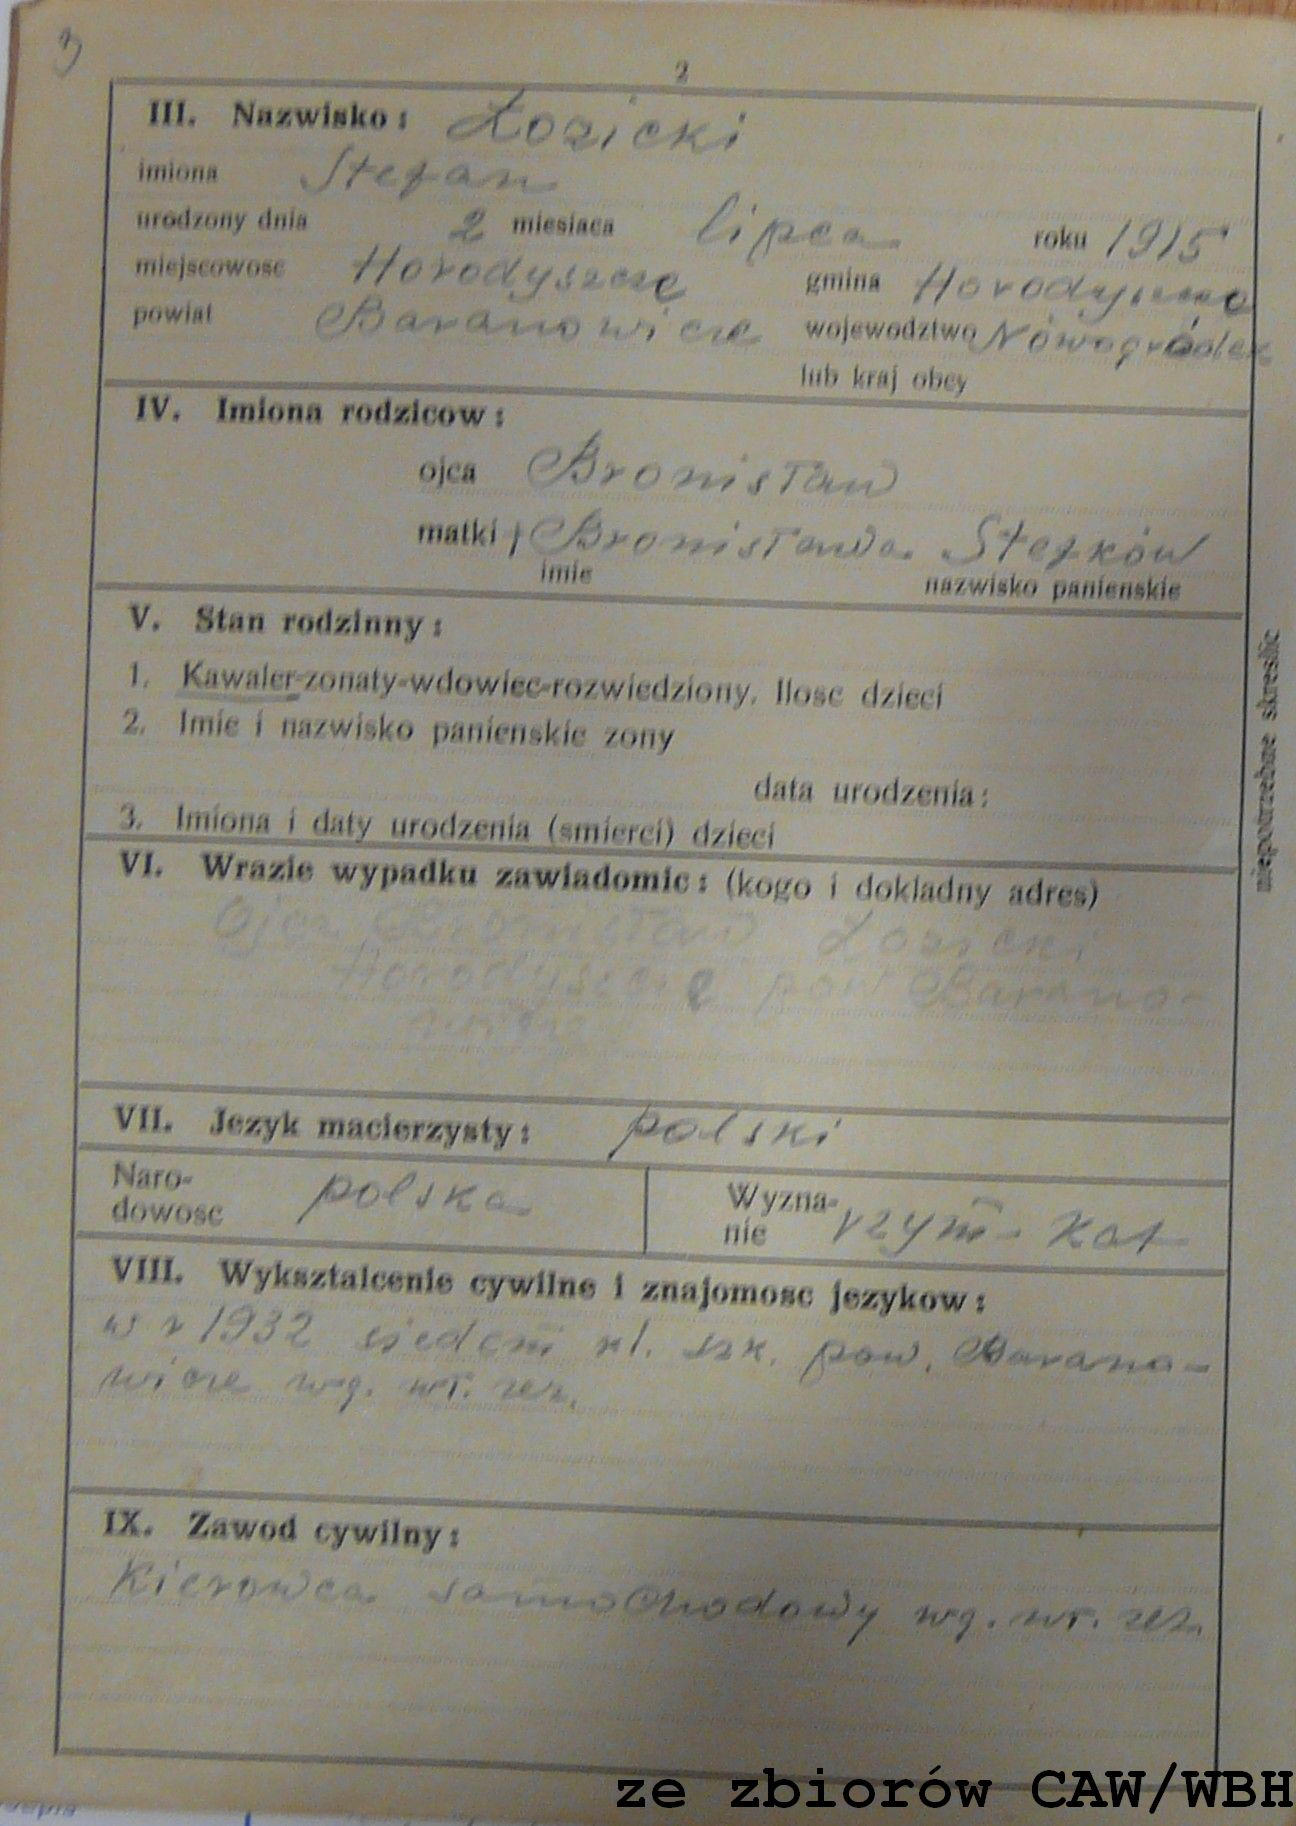 3
2
III. Nazwisko: Łozicki
imiona Stefan
urodzony dnia 2 miesiaca lipca roku 1915
miejscowosc Horodyszcze gmina Horodyszcze
powiat Baranowicze wojewodztwo Nówogródek
lub kraj obcy
IV. Imiona rodzicow:
ojca Bronisław
matki Bronisława Stefków
imie nazwisko panienskie
V. Stan rodzinny:
1. Kawaler-zonaty-wdowiec-rozwiedziony. Ilosc dzieci
2. Imie i nazwisko panienskie zony
data urodzenia:
3. Imiona i daty urodzenia (smierci) dzieci
niepotrzebne skreslic
VI. Wrazie wypadku zawiadomic: (kogo i dokladny adres)
Ojca Bronisław Łozicki
Horodyszcze pow Barano-
wicze
VII. Jezyk macierzysty: polski
Naro-
dowosc polska
Wyzna-
nie rzym - kat
VIII. Wyksztalcenie cywilne i znajomosc jezykow:
w r 1932 siedem kl. szk. pow. Barano-
wicze wg. wł. zez.
IX. Zawod cywilny:
Kierowca samochodowy wg. wł. zez.
ze zbiorów CAW/WBH